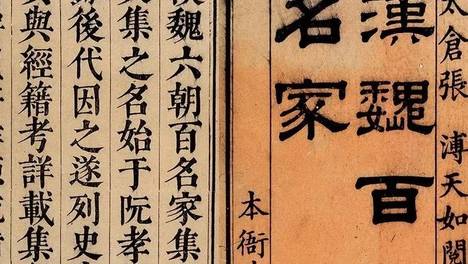 太倉張溥天如閱
漢魏百
名家
本衙
漢魏六朝百名家集
集之名始于阮孝
後代因之遂列史
與經籍考詳載集